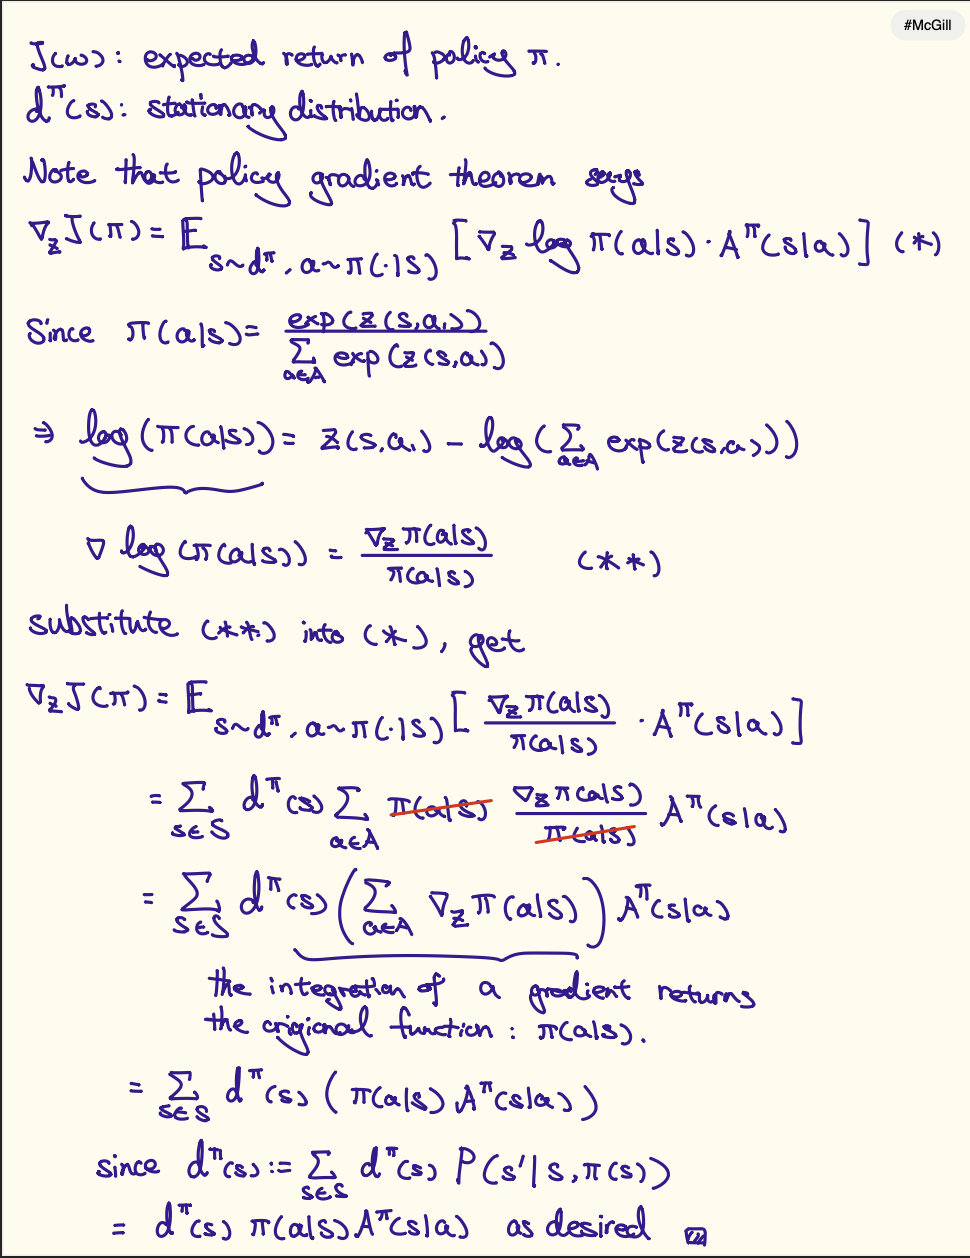 #McGill
J(w): expected return of policy π.
d^π(s): stationary distribution.
Note that policy gradient theorem says
∇_z J(π) = 𝔼_{s~d^π, a~π(·|s)} [∇_z log π(a|s) · A^π(s|a)] (*)
Since π(a|s) = exp(z(s,a)) / Σ_{a∈A} exp(z(s,a))
⇒ log(π(a|s)) = z(s,a) − log(Σ_{a∈A} exp(z(s,a)))
∇ log(π(a|s)) = ∇_z π(a|s) / π(a|s) (**)
substitute (**) into (*), get
∇_z J(π) = 𝔼_{s~d^π, a~π(·|s)} [∇_z π(a|s) / π(a|s) · A^π(s|a)]
= Σ_{s∈S} d^π(s) Σ_{a∈A} π(a|s) ∇_z π(a|s) / π(a|s) A^π(s|a)
= Σ_{s∈S} d^π(s) (Σ_{a∈A} ∇_z π(a|s)) A^π(s|a)
the integration of a gradient returns
the crigional function : π(a|s).
= Σ_{s∈S} d^π(s) (π(a|s) A^π(s|a))
since d^π(s) := Σ_{s∈S} d^π(s) P(s'|s, π(s))
= d^π(s) π(a|s) A^π(s|a) as desired